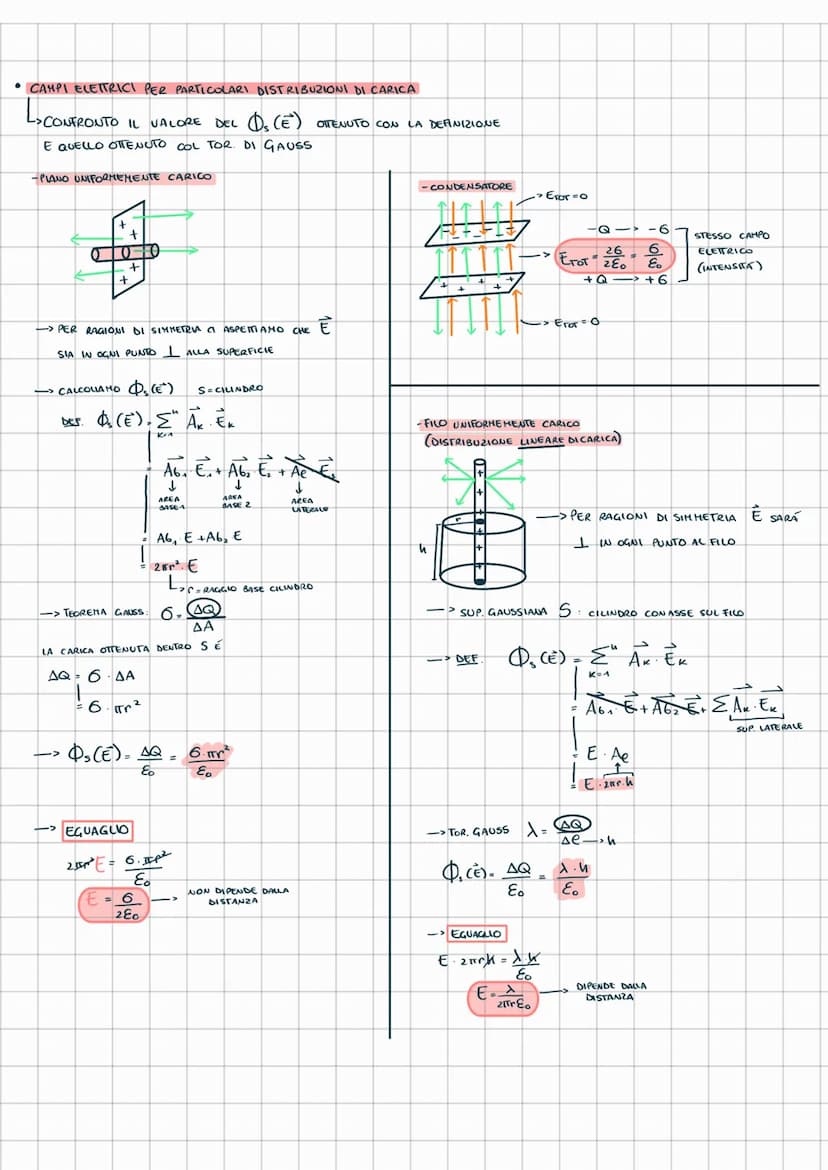 • CAMPI ELETTRICI PER PARTICOLARI DISTRIBUZIONI DI CARICA
↳ CONFRONTO IL VALORE DEL Φs(E⃗) OTTENUTO CON LA DEFINIZIONE
E QUELLO OTTENUTO COL TOR. DI GAUSS
- PIANO UNIFORMEMENTE CARICO
→ PER RAGIONI DI SIMMETRIA CI ASPETTIAMO CHE E⃗
SIA IN OGNI PUNTO ⊥ ALLA SUPERFICIE
→ CALCOLIAMO Φs(E⃗) S=CILINDRO
DEF. Φs(E⃗) = Σⁿ K=1 A⃗k · E⃗k
= A⃗b₁ · E⃗₁ + A⃗b₂ · E⃗₂ + A⃗e · E⃗₃
↓ AREA BASE 1 ↓ AREA BASE 2 ↓ AREA LATERALE
= Ab₁ E + Ab₂ E
= 2πr² · E
↳ r = RAGGIO BASE CILINDRO
→ TEOREMA GAUSS: σ = ΔQ/ΔA
LA CARICA OTTENUTA DENTRO S É
ΔQ = σ · ΔA
= σ · πr²
→ Φs(E⃗) = ΔQ/ε₀ = σ·πr²/ε₀
→ EGUAGLIO
2πr² E = σ·πr²/ε₀
E = σ/2ε₀ → NON DIPENDE DALLA
DISTANZA
- CONDENSATORE
→ ETOT = 0
-Q → -σ
→ ETOT = 2σ/2ε₀ = σ/ε₀
+Q → +σ
STESSO CAMPO
ELETTRICO
(INTENSITÁ)
→ ETOT = 0
- FILO UNIFORMEMENTE CARICO
(DISTRIBUZIONE LINEARE DI CARICA)
r
h
→ PER RAGIONI DI SIMMETRIA E⃗ SARÁ
⊥ IN OGNI PUNTO AL FILO
→ SUP. GAUSSIANA S : CILINDRO CON ASSE SUL FILO
→ DEF. Φs(E⃗) = Σⁿ K=1 A⃗k · E⃗k
= A⃗b₁ · E⃗ + A⃗b₂ · E⃗ + Σ A⃗k · E⃗k
SUP LATERALE
= E · Ae
= E · 2πr·h
→ TOR. GAUSS λ = ΔQ/Δe → h
Φs(E⃗) = ΔQ/ε₀ = λ·h/ε₀
→ EGUAGLIO
E · 2πrh = λh/ε₀
E = λ/2πrε₀ → DIPENDE DALLA
DISTANZA